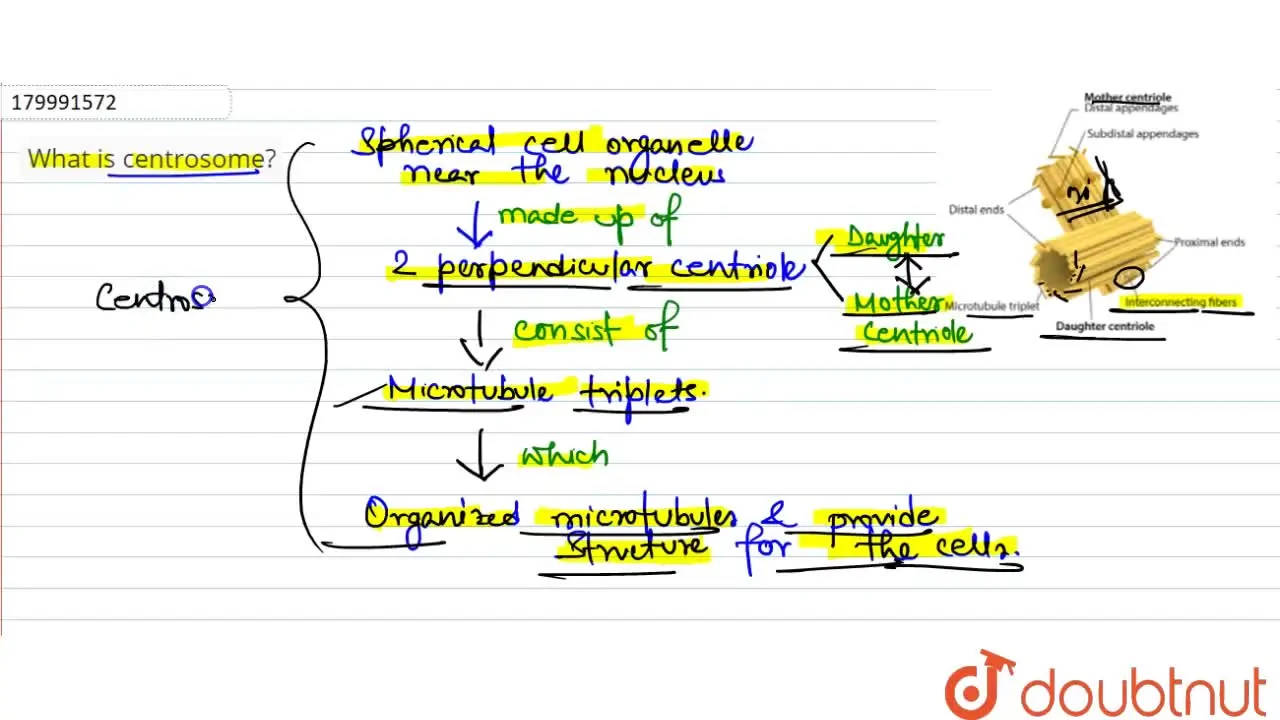 179991572
What is centrosome?
Spherical cell organelle
near the nucleus
made up of
2 perpendicular centriole
Daughter
Mother
centriole
consist of
Microtubule triplets.
which
Organized microtubules & provide
structure for the cells.
Centroso
Mother centriole
Distal appendages
Subdistal appendages
Distal ends
Proximal ends
Microtubule triplet
Interconnecting fibers
Daughter centriole
doubtnut